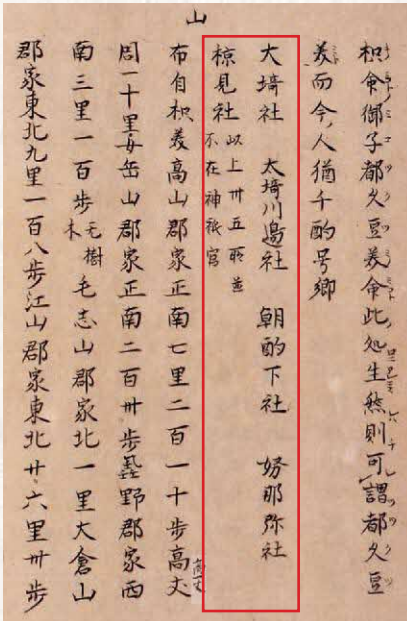 枳命御子都久豆美命此処生然則可謂都久豆
美而今人猶千酌号郷
大埼社　太埼川邊社　朝酌下社　努那弥社
椋見社 以上卅五所並
不在神祇官
山
布自枳美高山郡家正南七里二百一十歩高丈
周一十里女岳山郡家正南二百卅歩蝨野郡家西
南三里一百歩 无樹
木 毛志山郡家北一里大倉山
郡家東北九里一百八歩江山郡家東北廿六里卅歩